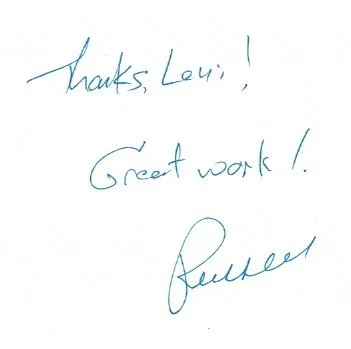 Thanks, Levi!
Great work!
Russell